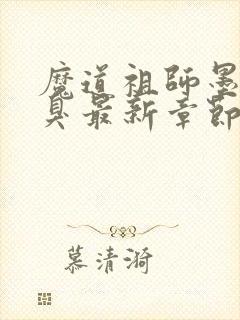 魔道祖師墨
臭最新章節
慕清漪